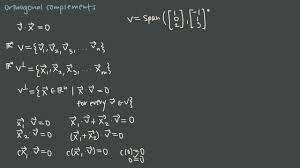 orthogonal complements
v⃗ · x⃗ = 0
V = span([1 0 2], [-1 1 3])
ℝⁿ V = {v⃗₁, v⃗₂, v⃗₃, ... v⃗ₙ}
ℝⁿ V⊥ = {x⃗₁, x⃗₂, x⃗₃, ... x⃗ₘ}
V⊥ = {x⃗ ∈ ℝⁿ | x⃗ · v⃗ = 0
for every v⃗ ∈ V}
x⃗₁ · v⃗ = 0 x⃗₁ · v⃗ + x⃗₂ · v⃗ = 0
x⃗₂ · v⃗ = 0 (x⃗₁ + x⃗₂) · v⃗ = 0
cx⃗₁ · v⃗ = 0 c(x⃗₁ · v⃗) = 0 c(0) = 0
0 = 0